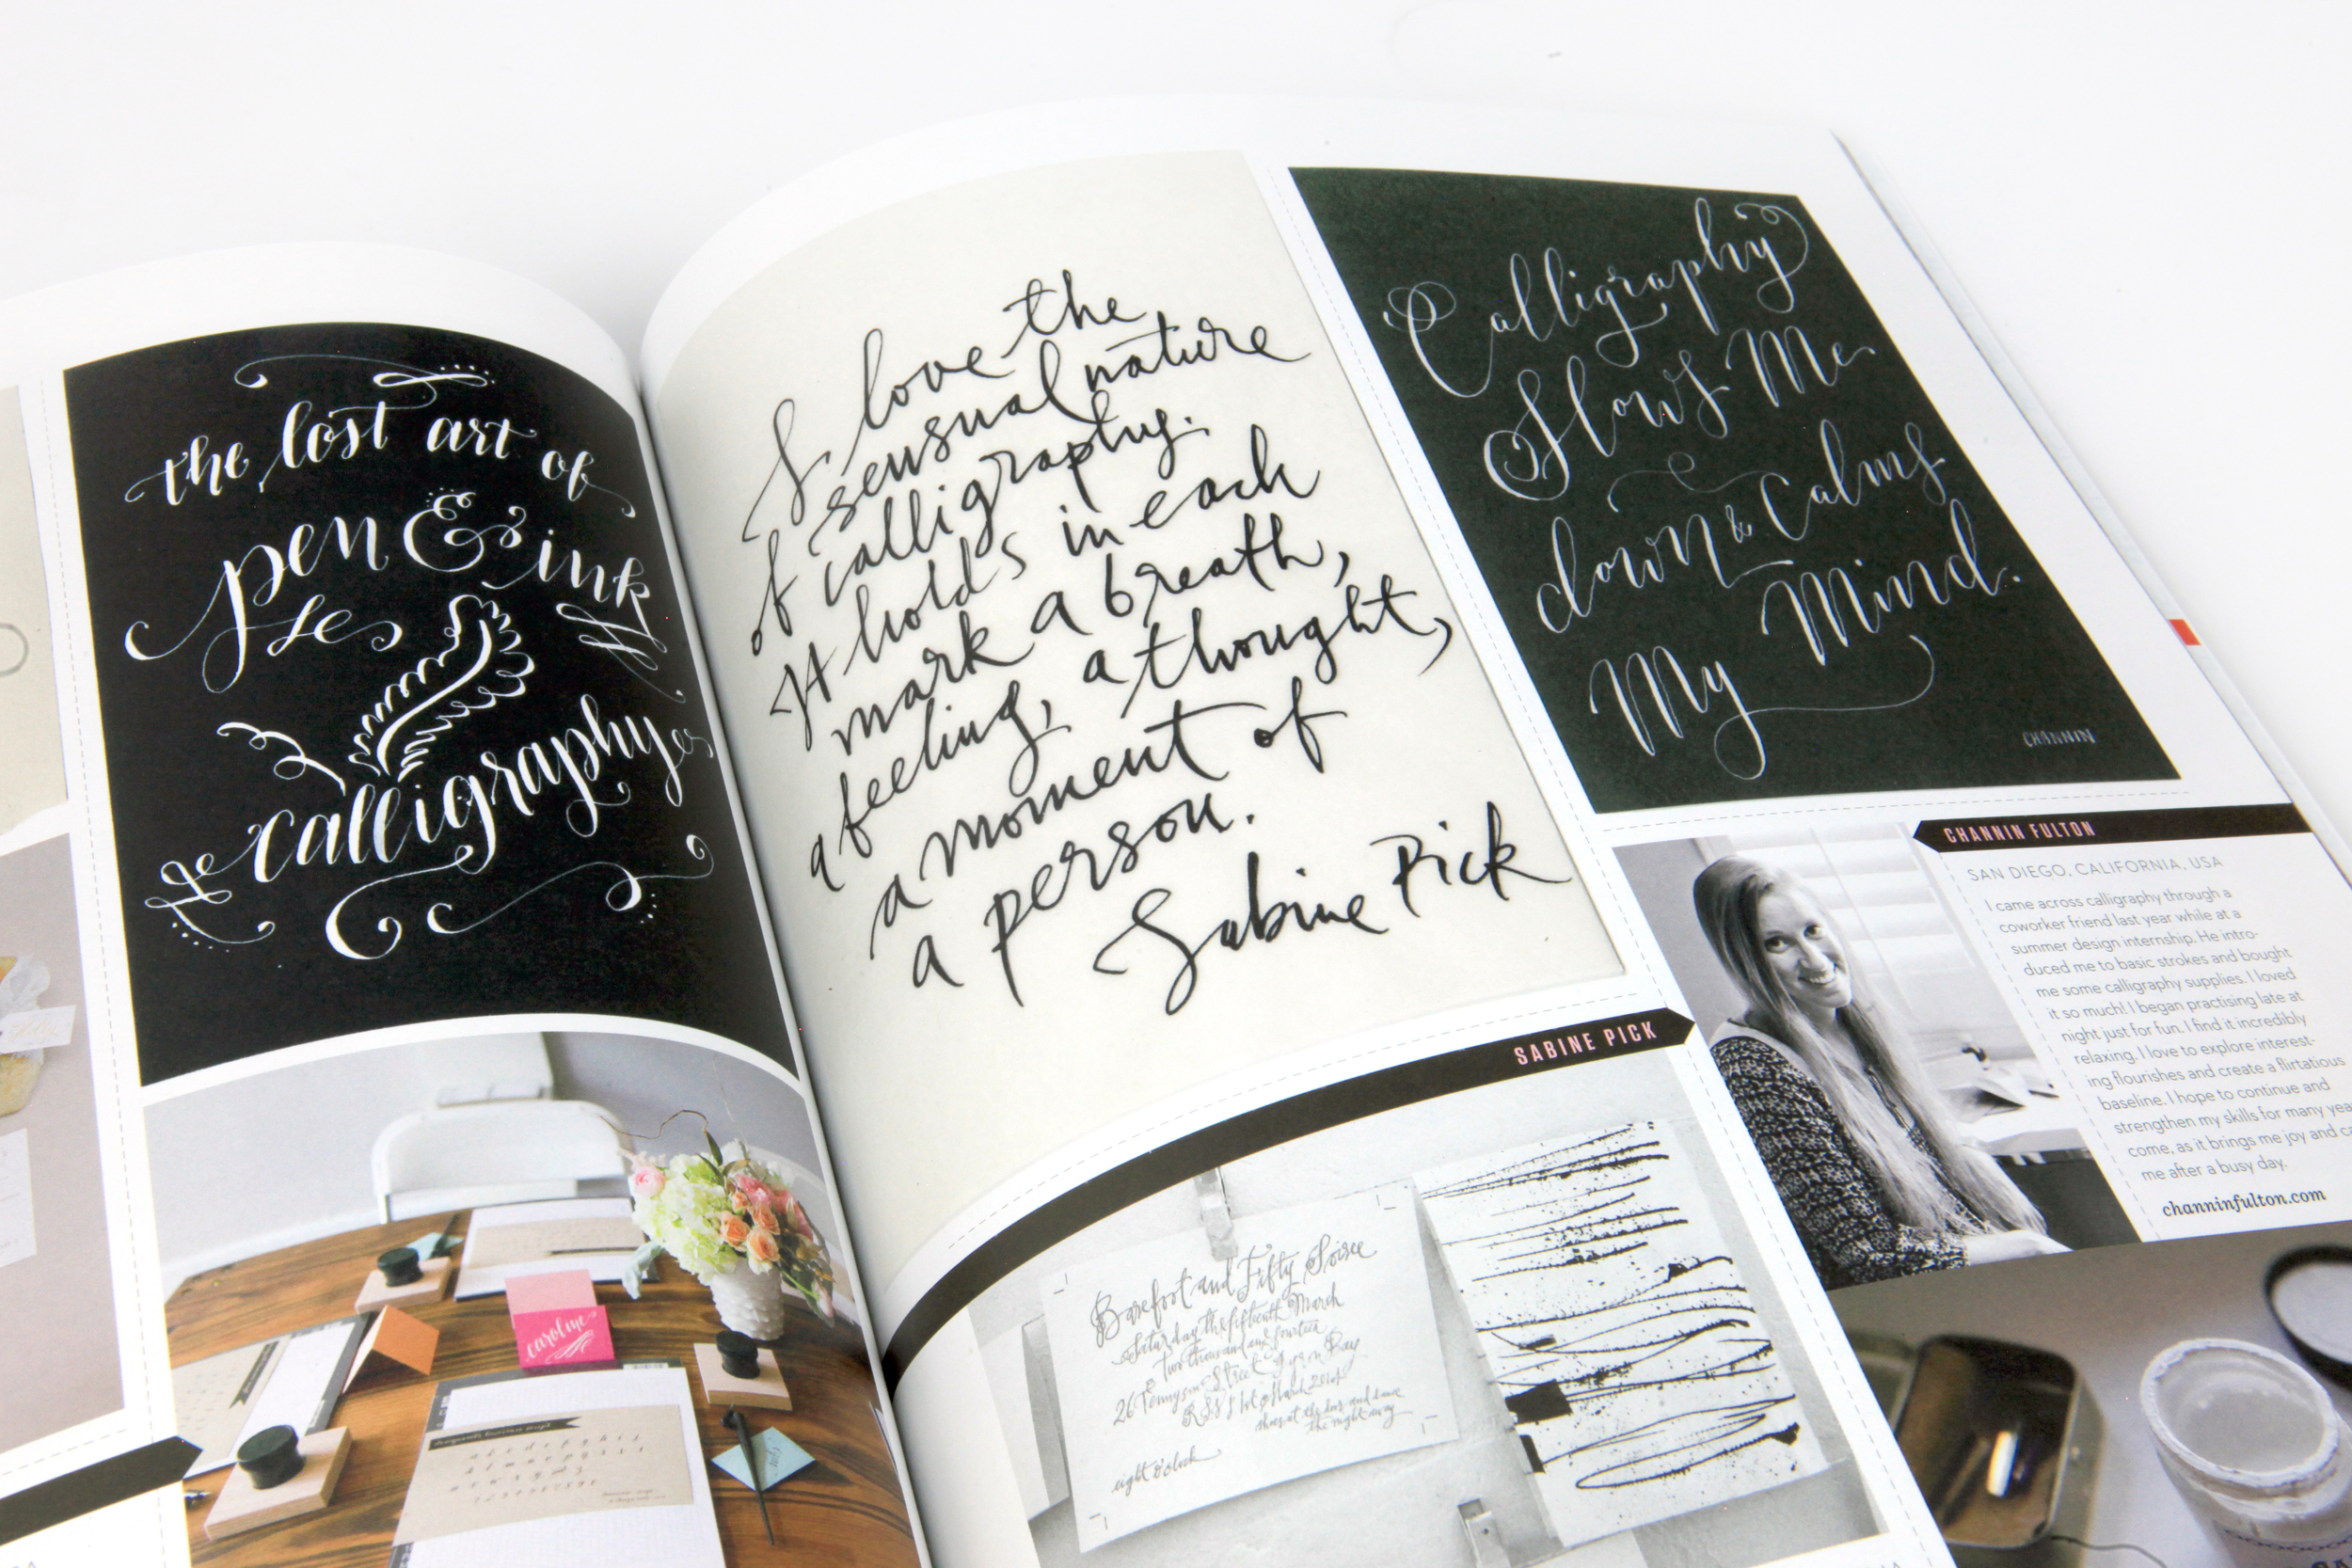 the lost art of
pen & ink
calligraphy
caroline
I love the
sensual nature
of calligraphy.
It holds in each
mark a breath,
a feeling, a thought,
a moment of
a person.
Sabine Pick
SABINE PICK
Barefoot and Fifty Soiree
Saturday the fifteenth March
two thousand and fourteen
26 Tennyson Street Byron Bay
eight o'clock
Calligraphy
Slows Me
down & Calms
My Mind.
CHANNIN
CHANNIN FULTON
SAN DIEGO, CALIFORNIA, USA
I came across calligraphy through a
coworker friend last year while at a
summer design internship. He intro-
duced me to basic strokes and bought
me some calligraphy supplies. I loved
it so much! I began practising late at
night just for fun. I find it incredibly
relaxing. I love to explore interest-
ing flourishes and create a flirtatious
baseline. I hope to continue and
strengthen my skills for many yea
come, as it brings me joy and ca
me after a busy day.
channinfulton.com